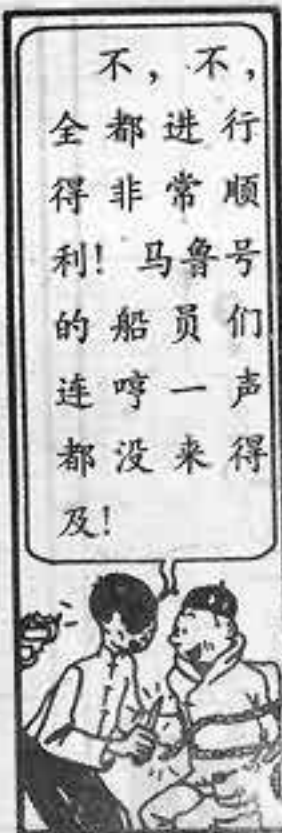 不，不，
全都进行
得非常顺
利！马鲁号
的船员们
连哼一声
都没来得
及！